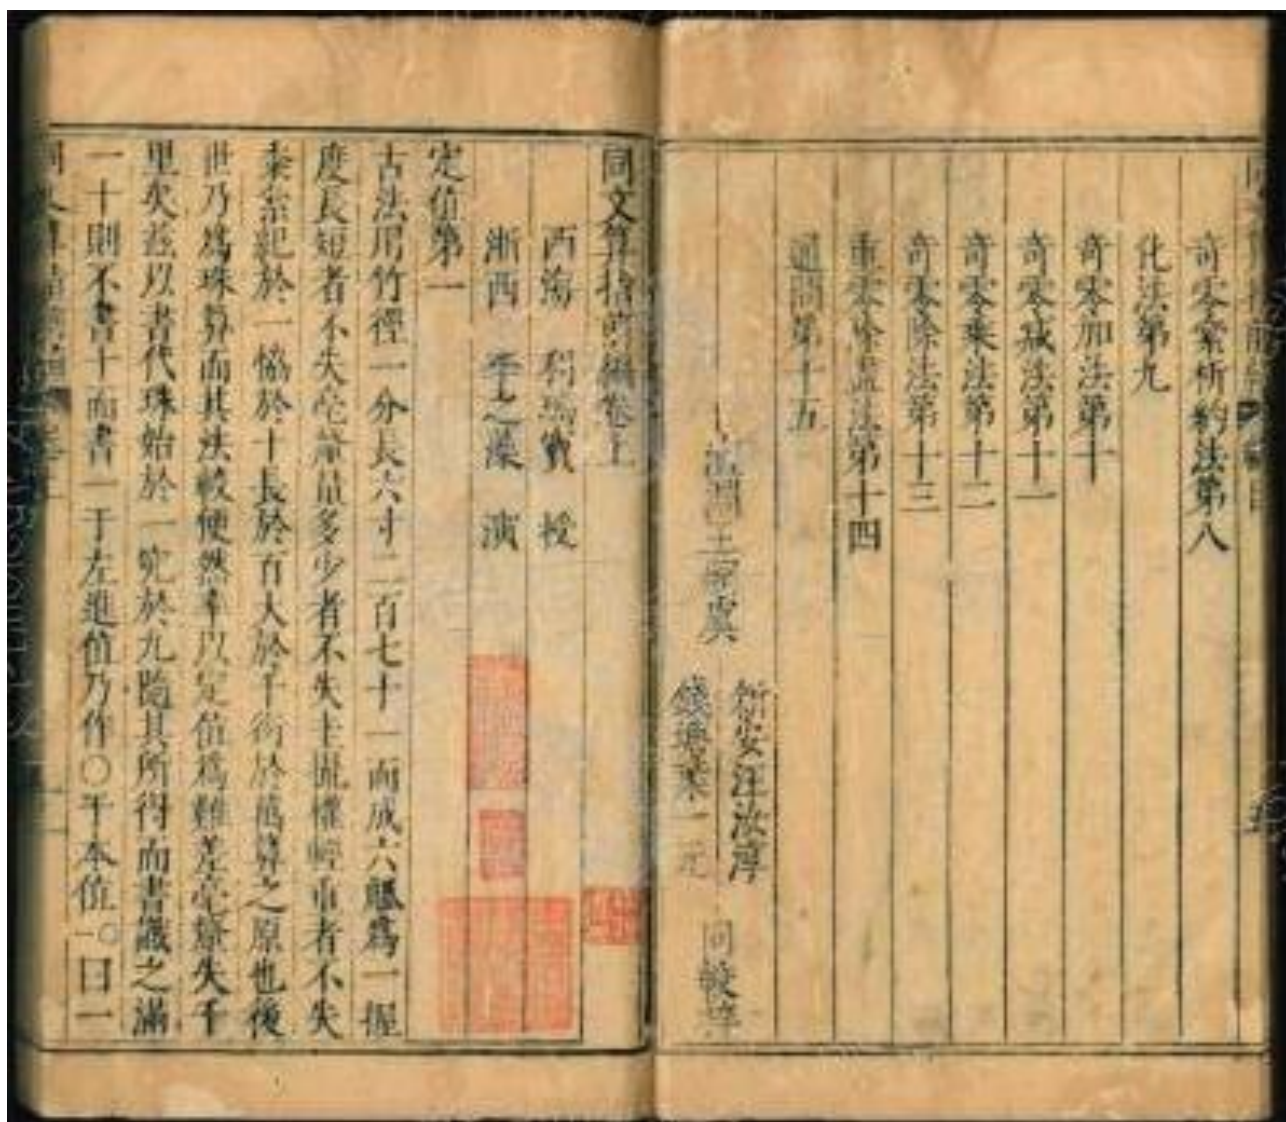 奇零累析約法第八
化法第九
奇零加法第十
奇零減法第十一
奇零乗法第十二
奇零除法第十三
重零除盡法第十四
通問第十五
新安汪汝淳
錢塘葉一元
同校梓
同文算指前編卷上
西海 利瑪竇 授
浙西 李之藻 演
定位第一
古法用竹徑一分長六寸二百七十一而成六觚爲一握
度長短者不失毫釐量多少者不失圭撮權輕重者不失
黍絫紀於一協於十長於百大於千衍於萬算之原也後
世乃爲珠算而其法較便然率以定位爲難差毫釐失千
里矣茲以書代珠始於一究於九隨其所得而書識之滿
一十則不書十而書一于左進位乃作〇于本位一〇曰一